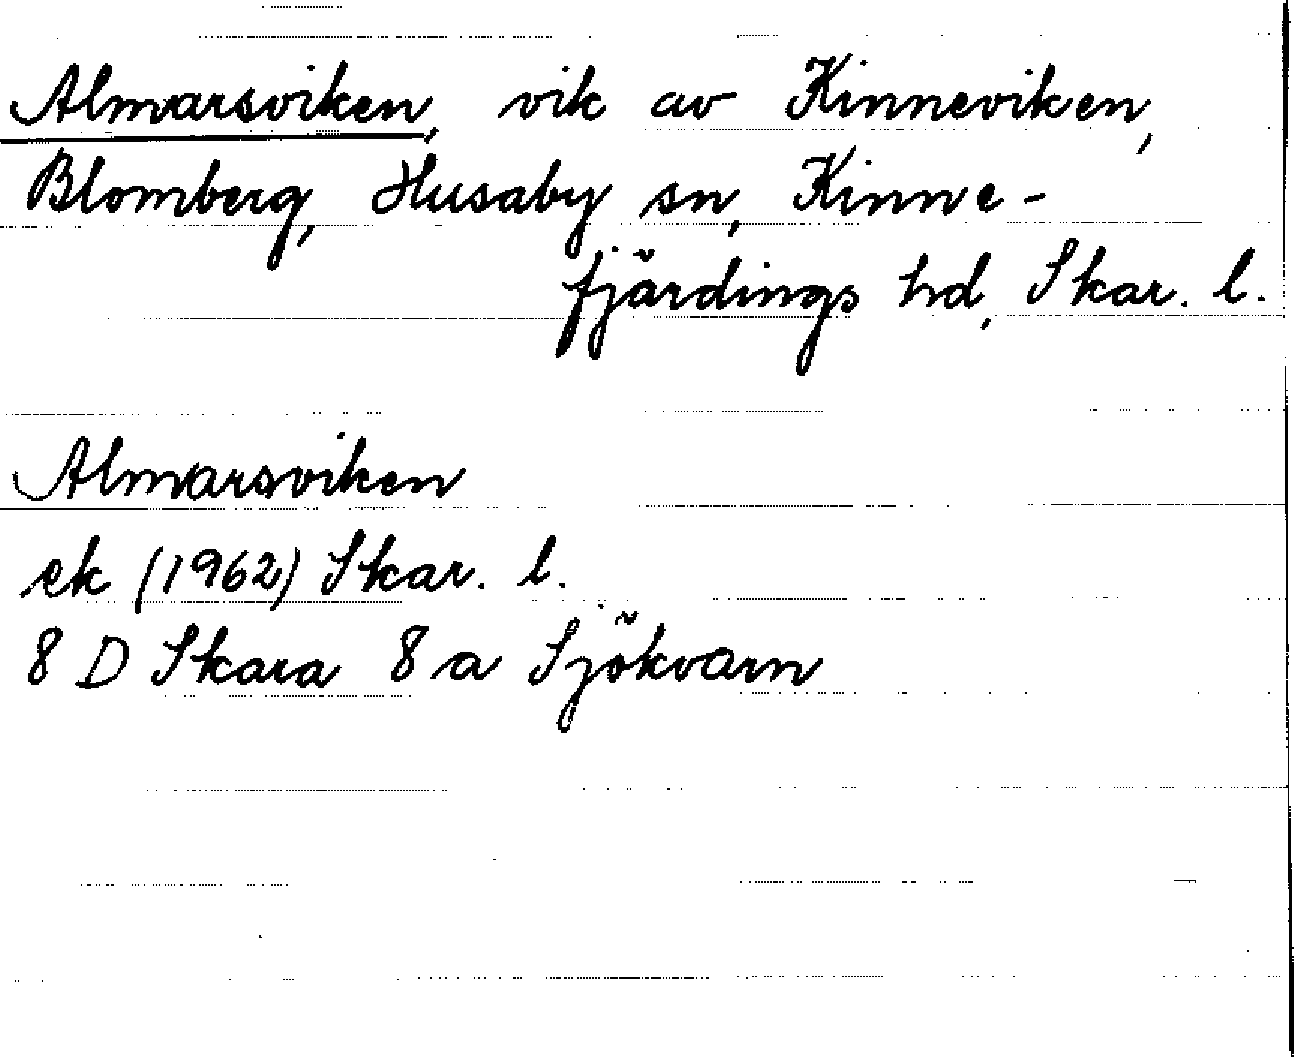 Almarsviken, vik av Kinneviken,
Blomberg, Husaby sn, Kinne-
fjärdings hd, Skar. l.
Almarsviken
ek (1962) Skar. l.
8 D Skara 8 a Sjökvarn